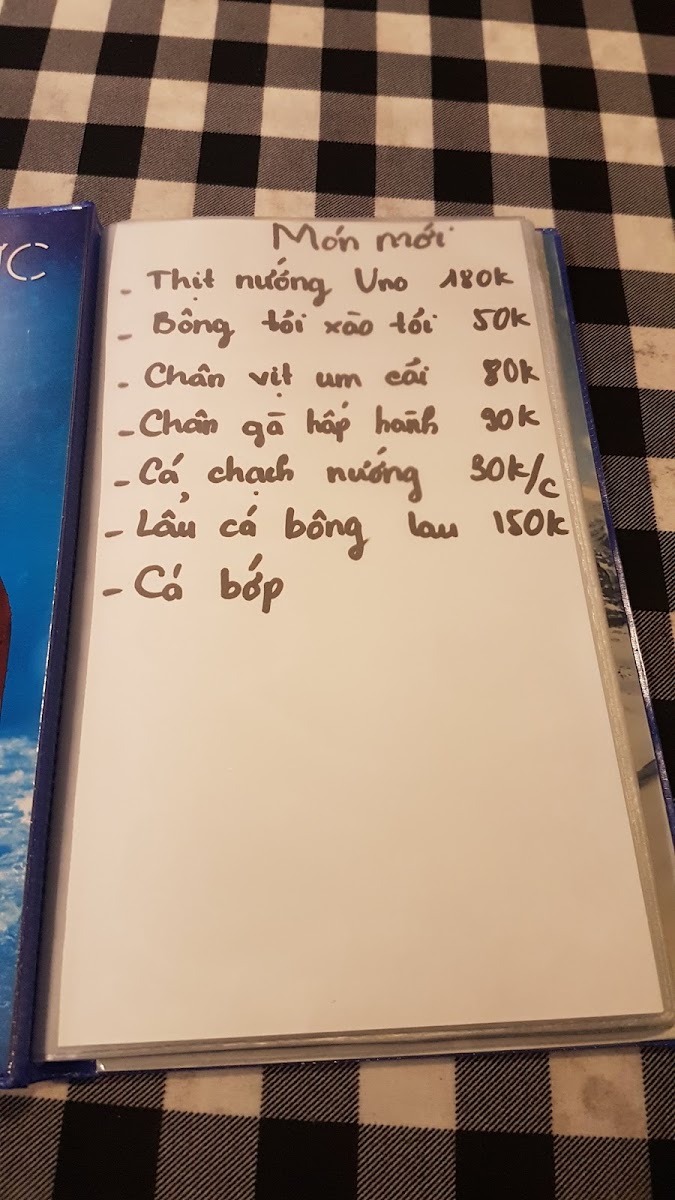 ỰC
Món mới
- Thịt nướng Uno 180k
- Bông tỏi xào tỏi 50k
- Chân vịt um cải 80k
- Chân gà hấp hành 90k
- Cá chạch nướng 30k/c
- Lẩu cá bông lau 150k
- Cá bớp